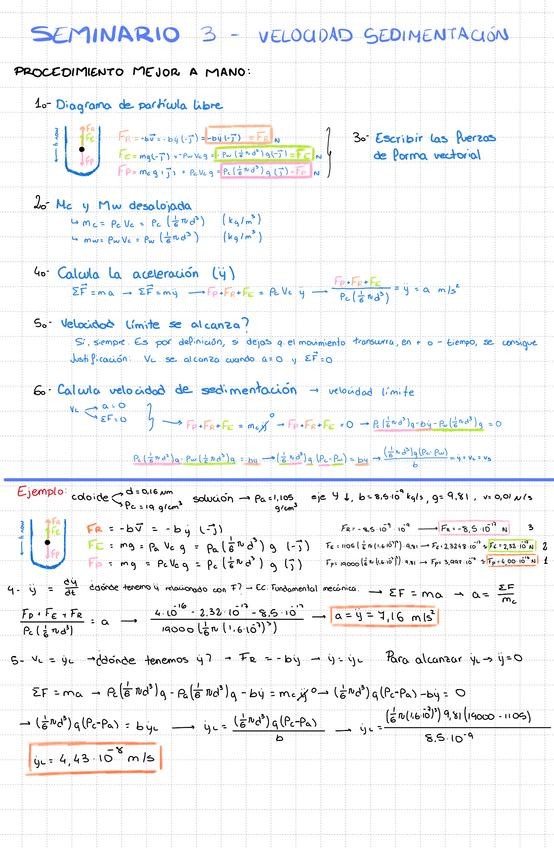 SEMINARIO 3 - VELOCIDAD SEDIMENTACIÓN
PROCEDIMIENTO MEJOR A MANO:
1o- Diagrama de partícula libre
FR = -bv⃗ = -bẏ (-j⃗) = -bẏ (-j⃗) = FR N
FE = mg(-j⃗) = -ρw Vc g = -ρw (1/6 π d³) g (-j⃗) = FE N
FP = mc g (j⃗) = ρc Vc g = ρc (1/6 π d³) g (j⃗) = FP N
3o- Escribir las fuerzas de forma vectorial
2o- Mc y Mw desalojada
↳ mc = ρc Vc = ρc (1/6 π d³) (kg/m³)
↳ mw = ρw Vc = ρw (1/6 π d³) (kg/m³)
4o- Calcula la aceleración (ÿ)
ΣF⃗ = ma → ΣF⃗ = mÿ → FP + FR + FE = ρc Vc ÿ → (FP + FR + FE) / (ρc (1/6 π d³)) = ÿ = a m/s²
5o- Velocidad límite se alcanza?
Sí, siempre. Es por definición, si dejas q. el movimiento transcurra, en + o - tiempo, se consigue
Justificación: VL se alcanza cuando a=0 y ΣF⃗=0
6o- Calcula velocidad de sedimentación → velocidad límite
VL a=0 ΣF=0 → FP + FR + FE = mc ÿ⁰ → FP + FR + FE = 0 → ρc (1/6 π d³) g - bẏ - ρw (1/6 π d³) g = 0
ρc (1/6 π d³) g - ρw (1/6 π d³) g = bẏ → (1/6 π d³) g (ρc - ρw) = bẏ → (1/6 π d³) g (ρc - ρw) / b = ẏ = vL = vs
Ejemplo: coloide d = 0,16 μm ρc = 19 g/cm³ solución → ρa = 1,105 g/cm³ eje y ↓, b = 8,5·10⁻⁹ kg/s, g = 9,81, v = 0,01 N/s
FR = -bv⃗ = -bẏ (-j⃗)
FE = mg = ρa Vc g = ρa (1/6 π d³) g (-j⃗)
FP = mg = ρc Vc g = ρc (1/6 π d³) g (j⃗)
4- ÿ = dẏ/dt ¿dónde tenemos ÿ relacionado con F? → Ec. Fundamental mecánica. → ΣF = ma → a = ΣF/mc
(FP + FE + FR) / (ρc (1/6 π d³)) = a → a = ÿ = 7,16 m/s²
5- VL = ẏL → ¿dónde tenemos ẏ? → FR = -bẏ → ẏ = ẏL Para alcanzar ẏL → ÿ = 0
ΣF = ma → ρc (1/6 π d³) g - ρa (1/6 π d³) g - bẏ = mc ÿ⁰ → (1/6 π d³) g (ρc - ρa) - bẏ = 0
→ (1/6 π d³) g (ρc - ρa) = bẏL → ẏL = (1/6 π d³) g (ρc - ρa) / b → ẏL = (1/6 π (1,6·10⁻⁷)³) 9,81 (19000 - 1105) / 8,5·10⁻⁹
ẏL = 4,43·10⁻⁸ m/s